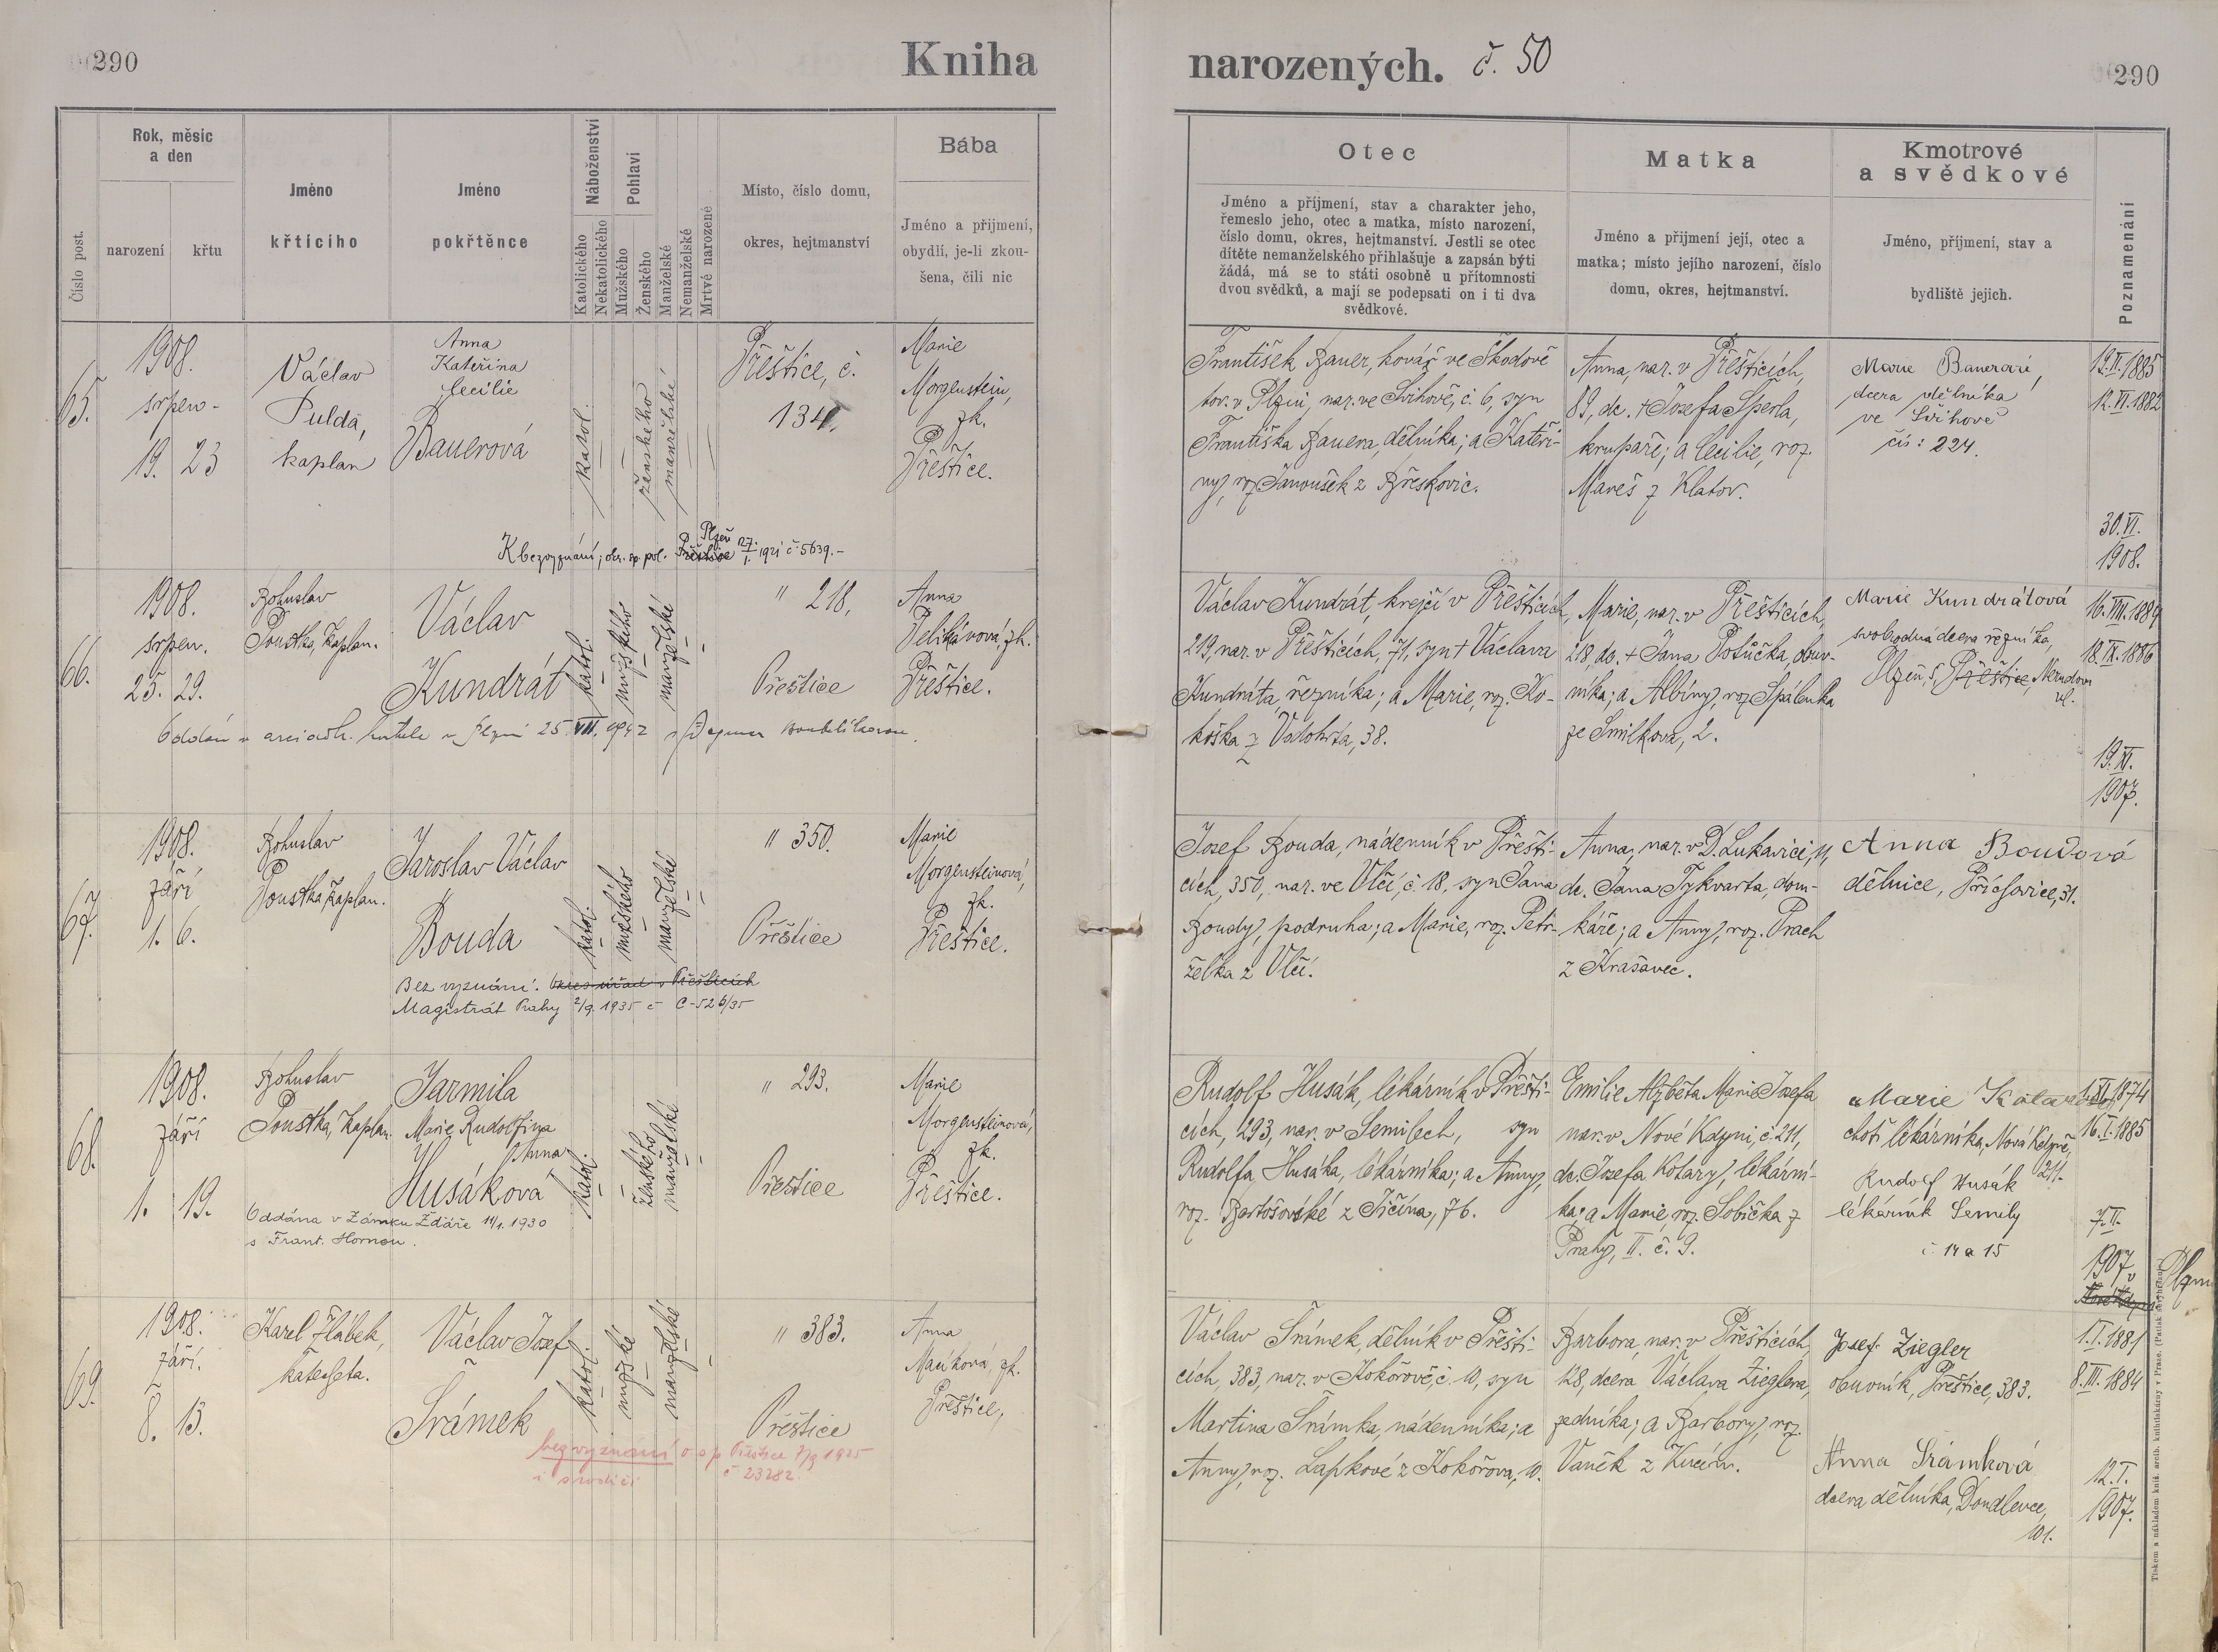 290
Kniha
narozených. č. 50
290
Číslo post.
Rok, měsíc
a den
narození
křtu
Jméno
křtícího
Jméno
pokřtěnce
Náboženství
Katolického
Nekatolického
Pohlaví
Mužského
Ženského
Manželské
Nemanželské
Mrtvě narozené
Místo, číslo domu,
okres, hejtmanství
Bába
Jméno a přijmení,
obydlí, je-li zkou-
šena, čili nic
Otec
Jméno a příjmení, stav a charakter jeho,
řemeslo jeho, otec a matka, místo narození,
číslo domu, okres, hejtmanství. Jestli se otec
dítěte nemanželského přihlašuje a zapsán býti
žádá, má se to státi osobně u přítomnosti
dvou svědků, a mají se podepsati on i ti dva
svědkové.
Matka
Jméno a přijmení její, otec a
matka; místo jejího narození, číslo
domu, okres, hejtmanství.
Kmotrové
a svědkové
Jméno, příjmení, stav a
bydliště jejich.
Poznamenání
65.
1908.
srpen
19. 23
Václav
Pulda,
kaplan
Anna
Kateřina
Cecilie
Bauerová
katol.
ženského
manželské
Přeštice, č.
134.
Marie
Morgenstein,
zk.
Přeštice.
František Bauer, kovář ve Škodově
tov. v Plzni, nar. ve Švihově, č. 6, syn
Františka Bauera, dělníka; a Kateři-
ny, roz. Janoušek z Břeskovic.
Anna, nar. v Přešticích,
89, dc. † Josefa Šperla,
krupaře; a Cecilie, roz.
Mareš z Klatov.
Marie Bauerová,
dcera dělníka
ve Švihově
čís: 224.
19.II.1885
12.VI.1882
30.VI.
1908.
K bezvyznání; okr. sp. pol. Přeštice Plzeň 27. 1. 1921 č 5639.-
66.
1908.
srpen.
25. 29.
Bohuslav
Poustka, Kaplan.
Václav
Kundrát
katol.
mužského
manželské
" 218,
Přeštice
Anna
Pelikánová, zk.
Přeštice.
Václav Kundrát, krejčí v Přešticích,
219, nar. v Přešticích, 71, syn † Václava
Kundráta, řezníka; a Marie, roz. Ko-
kóška z Volohřa, 38.
Marie, nar. v Přešticích,
218, dc. † Jana Potůčka, obuv-
níka; a Albíny, roz. Spálenka
ze Smilkova, 2.
Marie Kundrátová
svobodná dcera řezníka,
Plzeň, 5, Přeštice,
16.VIII.1884
18.IX.1886
19.XI.
1907.
Oddán v arciděk. kostele v Plzni 25. VII. 1942 s
67.
1908.
září
1. 6.
Bohuslav
Poustka, Kaplan.
Jaroslav Václav
Bouda
katol.
mužského
manželské
" 350.
Přeštice
Marie
Morgensteinová,
zk.
Přeštice.
Josef Bouda, nádenník v Přešti-
cích, 350, nar. ve Vlčí, č. 18, syn Jana
Boudy, podruha; a Marie, roz. Petr-
želka z Vlčí.
Anna, nar. v D. Lukavici, 11,
dc. Jana Tykvarta, dom-
káře; a Anny, roz. Prach
z Krašavec.
Anna Boudová
dělnice, Příchovice, 31.
Bez vyznání. Okres. úřad v Přešticích
Magistrát Prahy 2/9. 1935 č C-526/35
68.
1908.
září
1. 19.
Bohuslav
Poustka, Kaplan.
Jarmila
Marie Rudolfina
Anna
Husáková
katol.
ženského
manželské
" 293.
Přeštice
Marie
Morgensteinová,
zk.
Přeštice.
Rudolf Husák, lékárník v Přešti-
cích, 293, nar. v Semilech, syn
Rudolfa Husáka, lékárníka; a Anny,
roz. Bartošovské z Jičína, 76.
Emilie Alžběta Marie Josefa
nar. v Nové Kdyni, č. 211,
dc. Josefa Kolary, lékární-
ka; a Marie, roz. Sobička z
Prahy, II. č. 9.
Marie
choť lékárníka, Nová Kdyně,
211.
Rudolf Husák
lékárník Semily
č. 14 a 15
1.XI.1874
16.I.1885
7.II.
1907
v Plzni
Oddána v Zámku Žďáře 11/1. 1930
s Frant. Hornou.
69.
1908.
září.
8. 13.
Karel Hábek,
katecheta.
Václav Josef
Šrámek
katol.
mužské
manželské
" 383.
Přeštice
Anna
Macková, zk.
Přeštice,
Václav Šrámek, dělník v Přešti-
cích, 383, nar. v Kokořově, č. 10, syn
Martina Šrámka, nádenníka; a
Anny, roz. Lapkové z Kokořova, 10.
Barbora, nar. v Přešticích,
128, dcera Václava Zieglera,
zedníka; a Barbory, roz.
Vaněk z Kucín.
Josef Ziegler
obuvník, Přeštice, 383.
Anna Šrámková
dcera dělníka, Doudlevce,
101.
1.I.1881
8.III.1884
12.I.
1907.
bez vyznání o s p Přeštice 7/9 1925
i s rodiči č 23282